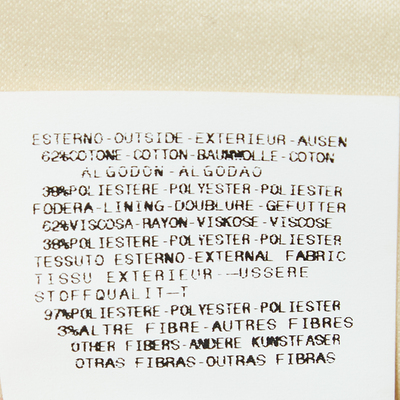 ESTERNO-OUTSIDE-EXTERIEUR-AUSEN
62%COTONE-COTTON-BAUMWOLLE-COTON
ALGODON-ALGODAO
38%POLIESTERE-POLYESTER-POLIESTER
FODERA-LINING-DOUBLURE-GEFUTTER
62%VISCOSA-RAYON-VISKOSE-VISCOSE
38%POLIESTERE-POLYESTER-POLIESTER
TESSUTO ESTERNO-EXTERNAL FABRIC
TISSU EXTERIEUR--USSERE
STOFFQUALIT-T
97%POLIESTERE-POLYESTER-POLIESTER
3%ALTRE FIBRE-AUTRES FIBRES
OTHER FIBERS-ANDERE KUNSTFASER
OTRAS FIBRAS-OUTRAS FIBRAS